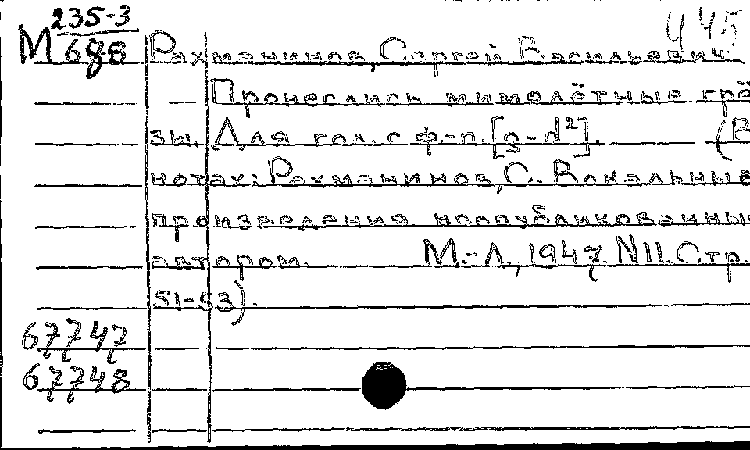 235-3
М 688
445
Рахманинов, Сергей Васильевич
Пронеслись мимолётные грё
зы. Для гол. с ф-п. [g-d²]. (В
нотах: Рахманинов, С. Вокальные
произведения неопубликованные
автором. М.-Л., 1947 N11. Стр.
51-53).
67747
67748